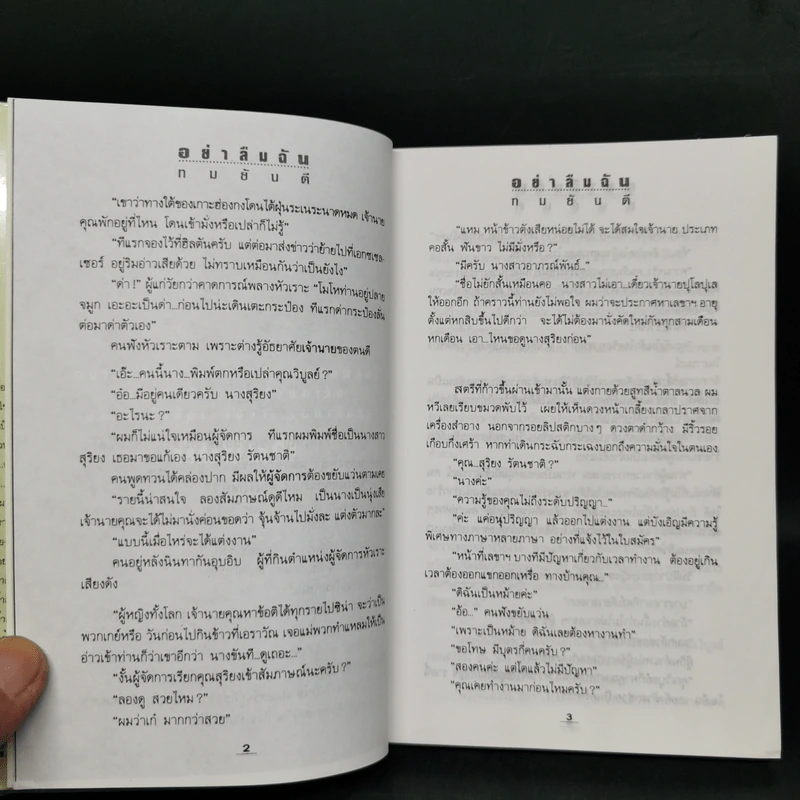 อย่าลืมฉัน
ทมยันตี
“เขาว่าทางใต้ของเกาะฮ่องกงโดนไต้ฝุ่นระเนระนาดหมด เจ้านาย
คุณพักอยู่ที่ไหน โดนเข้ามั่งหรือเปล่าก็ไม่รู้”
“ทีแรกจองไว้ที่ฮิลตันครับ แต่ต่อมาส่งข่าวว่าย้ายไปที่เอกซเซล-
เซอร์ อยู่ริมอ่าวเสียด้วย ไม่ทราบเหมือนกันว่าเป็นยังไง”
“ด่า !” ผู้แก่วัยกว่าคาดการณ์พลางหัวเราะ “โมโหท่านอยู่ปลาย
จมูก เอะอะเป็นด่า...ก่อนไปน่ะเดินเตะกระป๋อง ทีแรกด่ากระป๋องลั่น
ต่อมาด่าตัวเอง”
คนฟังหัวเราะตาม เพราะต่างรู้อัธยาศัยเจ้านายของตนดี
“เอ๊ะ... คนนี้นาง...พิมพ์ตกหรือเปล่าคุณวิบูลย์ ?”
“อ๋อ...มีอยู่คนเดียวครับ นางสุริยง”
“อะไรนะ ?”
“ผมก็ไม่แน่ใจเหมือนผู้จัดการ ทีแรกผมพิมพ์ชื่อเป็นนางสาว
สุริยง เธอมาขอแก้เอง นางสุริยง รัตนชาติ”
คนพูดทวนได้คล่องปาก มีผลให้ผู้จัดการต้องขยับแว่นตามเคย
“รายนี้น่าสนใจ ลองสัมภาษณ์ดูดีไหม เป็นนางเป็นนุ่งเสีย
เจ้านายคุณจะได้ไม่มานั่งค่อนขอดว่า จุ้นจ้านไปมั่งละ แต่งตัวมากละ”
“แบบนี้เมื่อไหร่จะได้แต่งงาน”
คนอยู่หลังนินทากันอุบอิบ ผู้ที่กินตำแหน่งผู้จัดการหัวเราะ
เสียงดัง
“ผู้หญิงทั้งโลก เจ้านายคุณหาข้อติได้ทุกรายไปซิน่า จะว่าเป็น
พวกเกย์หรือ วันก่อนไปกินข้าวที่เอราวัณ เจอแม่พวกทำแหลมให้เป็น
อ่าวเข้าท่านก็ว่าเขาอีกว่า นางขันที...ดูเถอะ...”
“งั้นผู้จัดการเรียกคุณสุริยงเข้าสัมภาษณ์นะครับ ?”
“ลองดู สวยไหม ?”
“ผมว่าเก๋ มากกว่าสวย”
2
อย่าลืมฉัน
ทมยันตี
“แหม หน้าข้าวตังเสียหน่อยไม่ได้ จะได้สมใจเจ้านาย ประเภท
คอสั้น ฟันขาว ไม่มีมั่งหรือ ?”
“มีครับ นางสาวอาภรณ์พันธุ์...”
“ชื่อไม่ยักสั้นเหมือนคอ นางสาวไม่เอา...เดี๋ยวเจ้านายปุโลปุเล
ให้ออกอีก ถ้าคราวนี้ท่านยังไม่พอใจ ผมว่าจะประกาศหาเลขาฯ อายุ
ตั้งแต่หกสิบขึ้นไปดีกว่า จะได้ไม่ต้องมานั่งคัดใหม่กันทุกสามเดือน
หกเดือน เอา...ไหนขอดูนางสุริยงก่อน”
สตรีที่ก้าวขึ้นผ่านเข้ามานั้น แต่งกายด้วยสูทสีน้ำตาลนวล ผม
หวีเลยเรียบขมวดพับไว้ เผยให้เห็นดวงหน้าเกลี้ยงเกลาปราศจาก
เครื่องสำอาง นอกจากรอยลิปสติกบางๆ ดวงตาดำกว้าง มีริ้วรอย
เกือบกึ่งเศร้า หากท่าเดินกระฉับกระเฉงบอกถึงความมั่นใจในตนเอง
“คุณ...สุริยง รัตนชาติ ?”
“นางค่ะ”
“ความรู้ของคุณไม่ถึงระดับปริญญา...”
“ค่ะ แค่อนุปริญญา แล้วออกไปแต่งงาน แต่บังเอิญมีความรู้
พิเศษทางภาษาหลายภาษา อย่างที่แจ้งไว้ในใบสมัคร”
“หน้าที่เลขาฯ บางทีมีปัญหาเกี่ยวกับเวลาทำงาน ต้องอยู่เกิน
เวลาต้องออกแขกออกเหรื่อ ทางบ้านคุณ...”
“ดิฉันเป็นหม้ายค่ะ”
“อ้อ...” คนฟังขยับแว่น
“เพราะเป็นหม้าย ดิฉันเลยต้องหางานทำ”
“ขอโทษ มีบุตรกี่คนครับ ?”
“สองคนค่ะ แต่โตแล้วไม่มีปัญหา”
“คุณเคยทำงานมาก่อนไหมครับ ?”
3